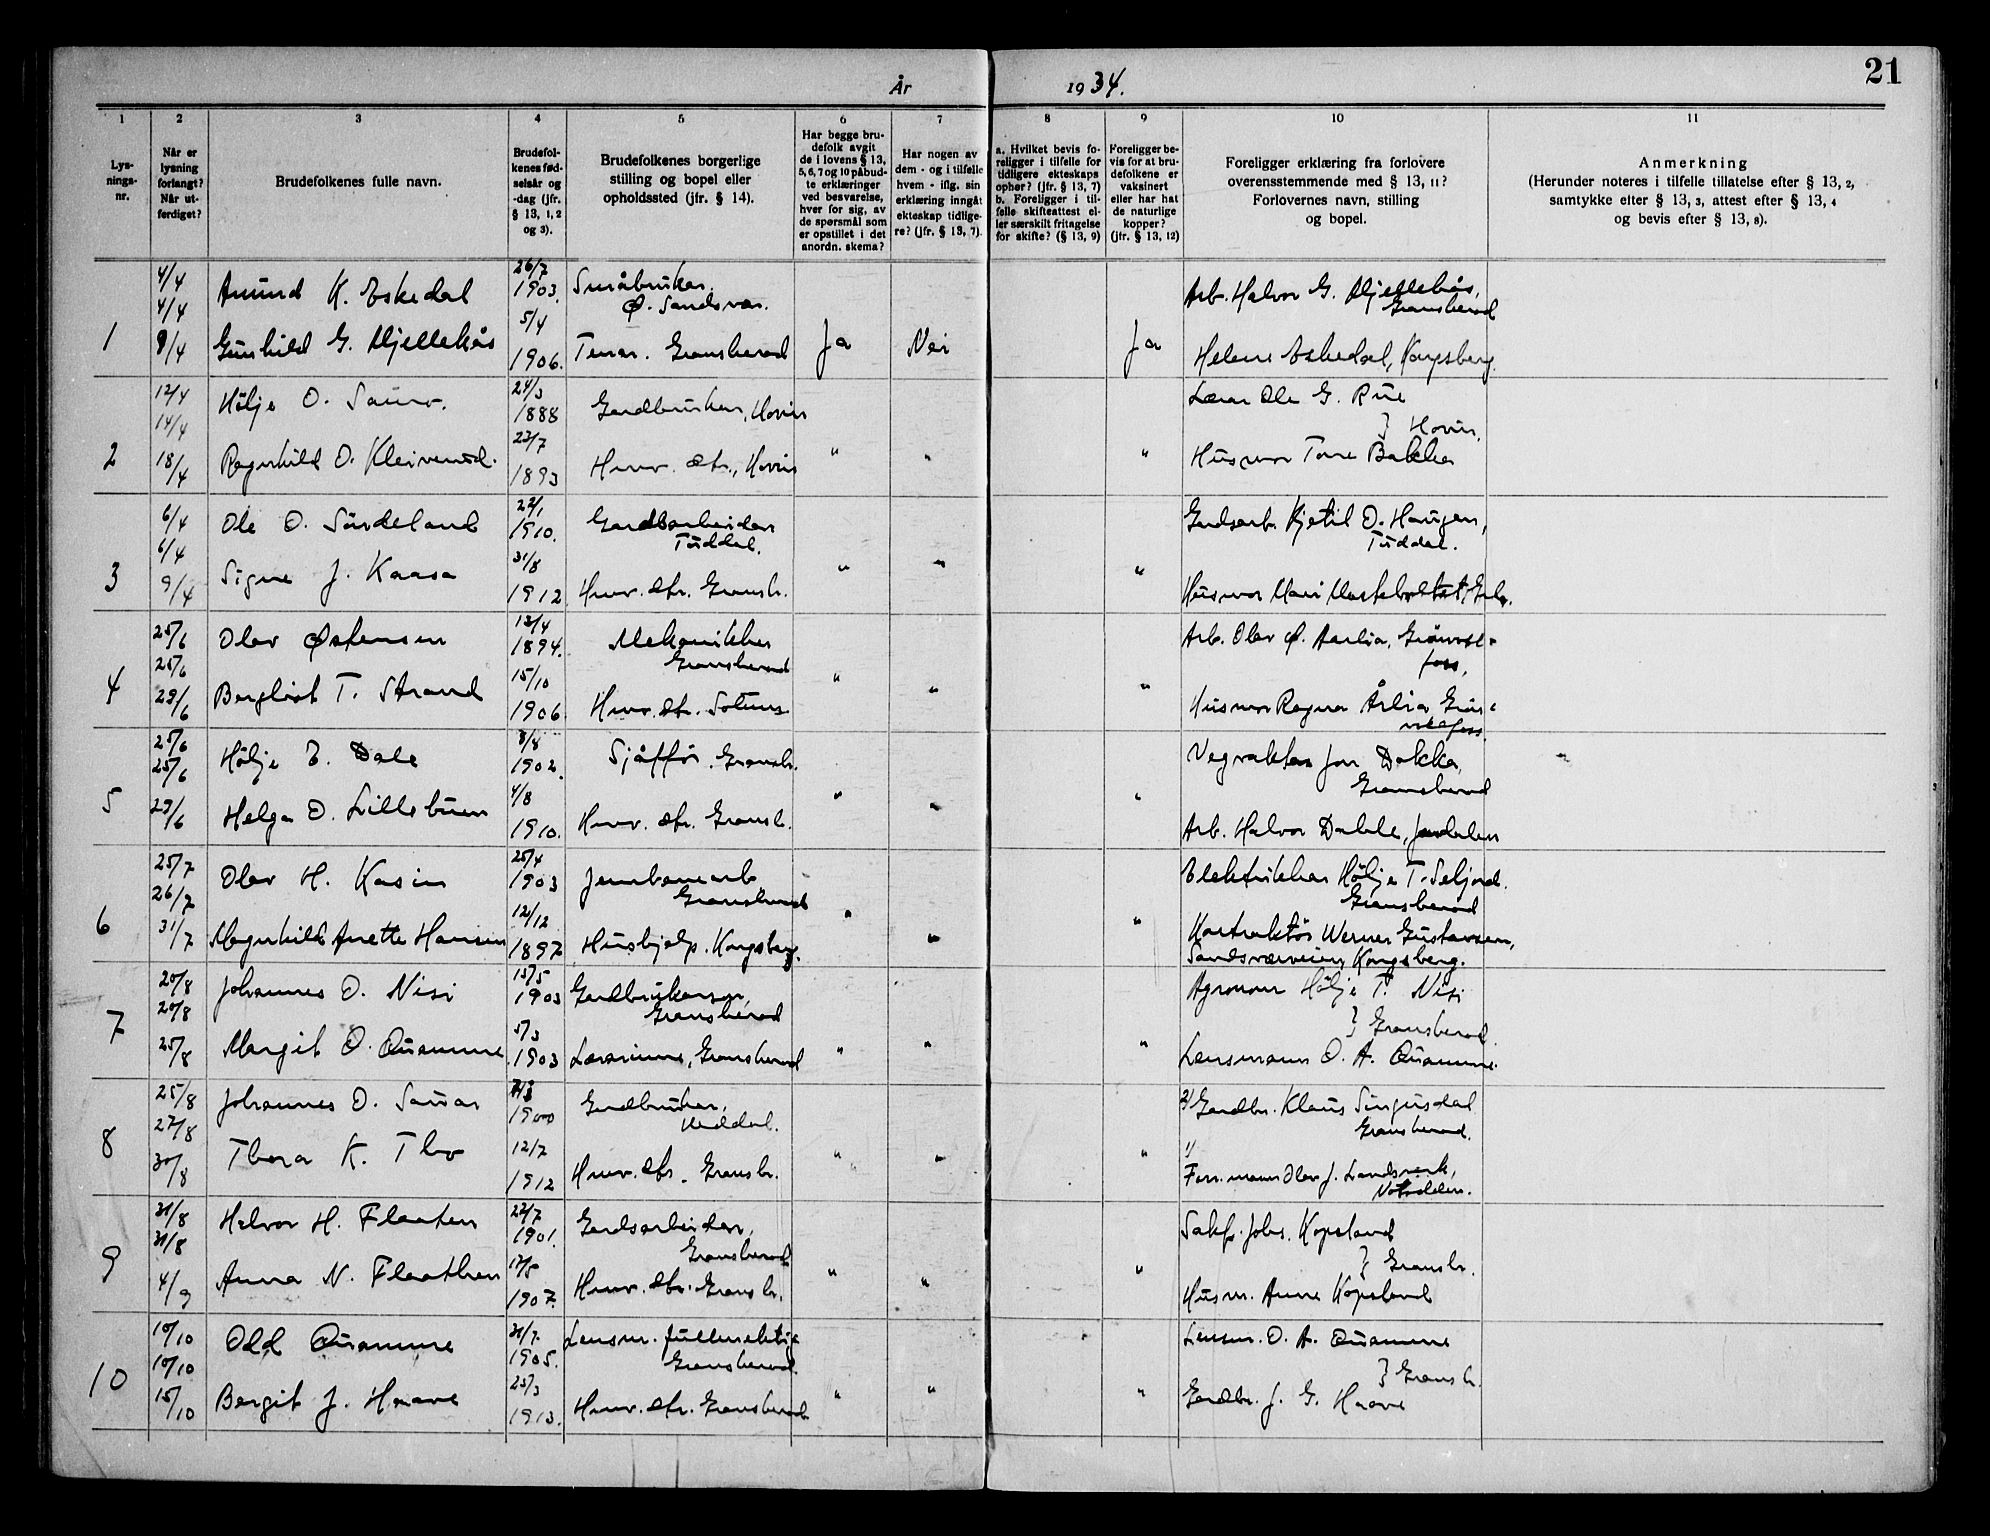 21
År 1934.
1 2 3 4 5 6 7 8 9 10 11
Lys-
nings-
nr.
Når er
lysning
forlangt?
Når ut-
ferdiget?
Brudefolkenes fulle navn.
Brudefol-
kenes fød-
selsår og
-dag (jfr.
§ 13, 1, 2
og 3).
Brudefolkenes borgerlige
stilling og bopel eller
opholdssted (jfr. § 14).
Har begge bru-
defolk avgit
de i lovens § 13,
5, 6, 7 og 10 påbud-
te erklæringer
ved besvarelse,
hver for sig, av
de spørsmål som
er opstillet i det
anordn. skema?
Har nogen av
dem - og i tilfelle
hvem - iflg. sin
erklæring inngåt
ekteskap tidlige-
re? (jfr. § 13, 7).
a. Hvilket bevis fo-
religger i tilfelle for
tidligere ekteskaps
ophør? (jfr. § 13, 7)
b. Foreligger i til-
felle skifteattest el-
ler særskilt fritagelse
for skifte? (§ 13, 9)
Foreligger be-
vis for at bru-
defolkene er
vaksinert
eller har hat
de naturlige
kopper?
(jfr. § 13, 12)
Foreligger erklæring fra forlovere
overensstemmende med § 13, 11?
Forlovernes navn, stilling
og bopel.
Anmerkning
(Herunder noteres i tilfelle tillatelse efter § 13, 2,
samtykke efter § 13, 3, attest efter § 13, 4
og bevis efter § 13, 8).
1
4/4
4/4
9/4
Amund K. Eskedal
Gunhild G. Mjellekås
26/7
1903.
5/4
1906.
Småbruker.
Ø. Sandsvær.
Tenar. Gransherad
Ja
Nei
Ja
Arb. Halvor G. Mjellekås,
Gransherad
Helene Eskedal, Kongsberg.
2
12/4
14/4
18/4
Hölje O. Sauro.
Ragnhild O. Kleiverud.
24/3
1888
23/7
1893
Gardbruker, Hovin
Heimv. dtr., Hovin
" " "
Lærar Ole G. Rue
} Hovin.
Husmor Tone Bakka
3
6/4
6/4
9/4
Ole O. Sördeland
Signe J. Kaasa
22/1
1910.
31/8
1912
Gardsarbeider
Tuddal.
Heimv. dtr. Gransh.
" " "
Gardsarb. Kjetil O. Haugen,
Tuddal.
Husmor Mari
4
25/6
25/6
29/6
Olav Østensen
Bergliot T. Strand
12/4
1894.
15/10
1906.
Mekanikker
Gransherad
Heimv. dtr.
" " "
Arb. Olav Ø. Aarlia, Grönvol-
foss,
Husmor Ragna Årlia
5
25/6
25/6
29/6
Hölje E. Dale
Helga O. Lillebuen
8/8
1902.
4/8
1910.
Sjåfför. Gransh.
Heimv. dtr. Gransh.
" " "
Vegvakter Jon Dokka,
Gransherad
Arb. Halvor Dokka, Jondalen
6
25/7
26/7
31/7
Olav H. Kasin
Magnhild Anette Hansen
25/4
1903
12/12
1897
Jernbanearb
Gransherad
Hushjelp. Kongsberg.
" " "
Elektrikker Hölje T. Seljord.
Gransherad
Kontraktör Werner Gustavsen,
Sandsværveien, Kongsberg.
7
20/8
20/8
25/8
Johannes O. Nisi
Margit O. Quamme
15/5
1903
5/3
1903
Gardbrukerson,
Gransherad
Lærarinne, Gransherad
" " "
Agronom Hölje T. Nisi
} Gransherad
Lensmann O. A. Quamme.
8
25/8
27/8
30/8
Johannes O. Sauar
Thora K. Tho
1900
12/7
1912
Gardbruker,
Heddal.
Heimv. dtr. Gransh.
" " "
2/ Gardbr. Klaus Singusdal
Gransherad.
1/
Forr.mann Olav J. Landsverk,
Notodden.
9
31/8
31/8
4/9
Halvor H. Flaaten
Anna N. Flaathen
22/7
1901.
17/5
1907.
Gardsarbeider,
Gransherad
Heimv. dtr. Gransh.
" " "
Sakf. Johs. Kopsland
} Gransh.
Husm. Anne Kopsland
10
10/10
10/10
15/10
Odd Quamme
Bergit J. Haave
31/7.
1905.
25/3
1913.
Lensm. fullmektig
Gransherad.
Heimv. dtr. Gransherad
" " "
Lensm. O. A. Quamme
} Gransh.
Gardbr. J. G. Haave